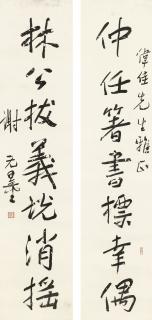 偉佳先生雅正
仲任箸書標幸偶
林公拔義說消搖
謝无量